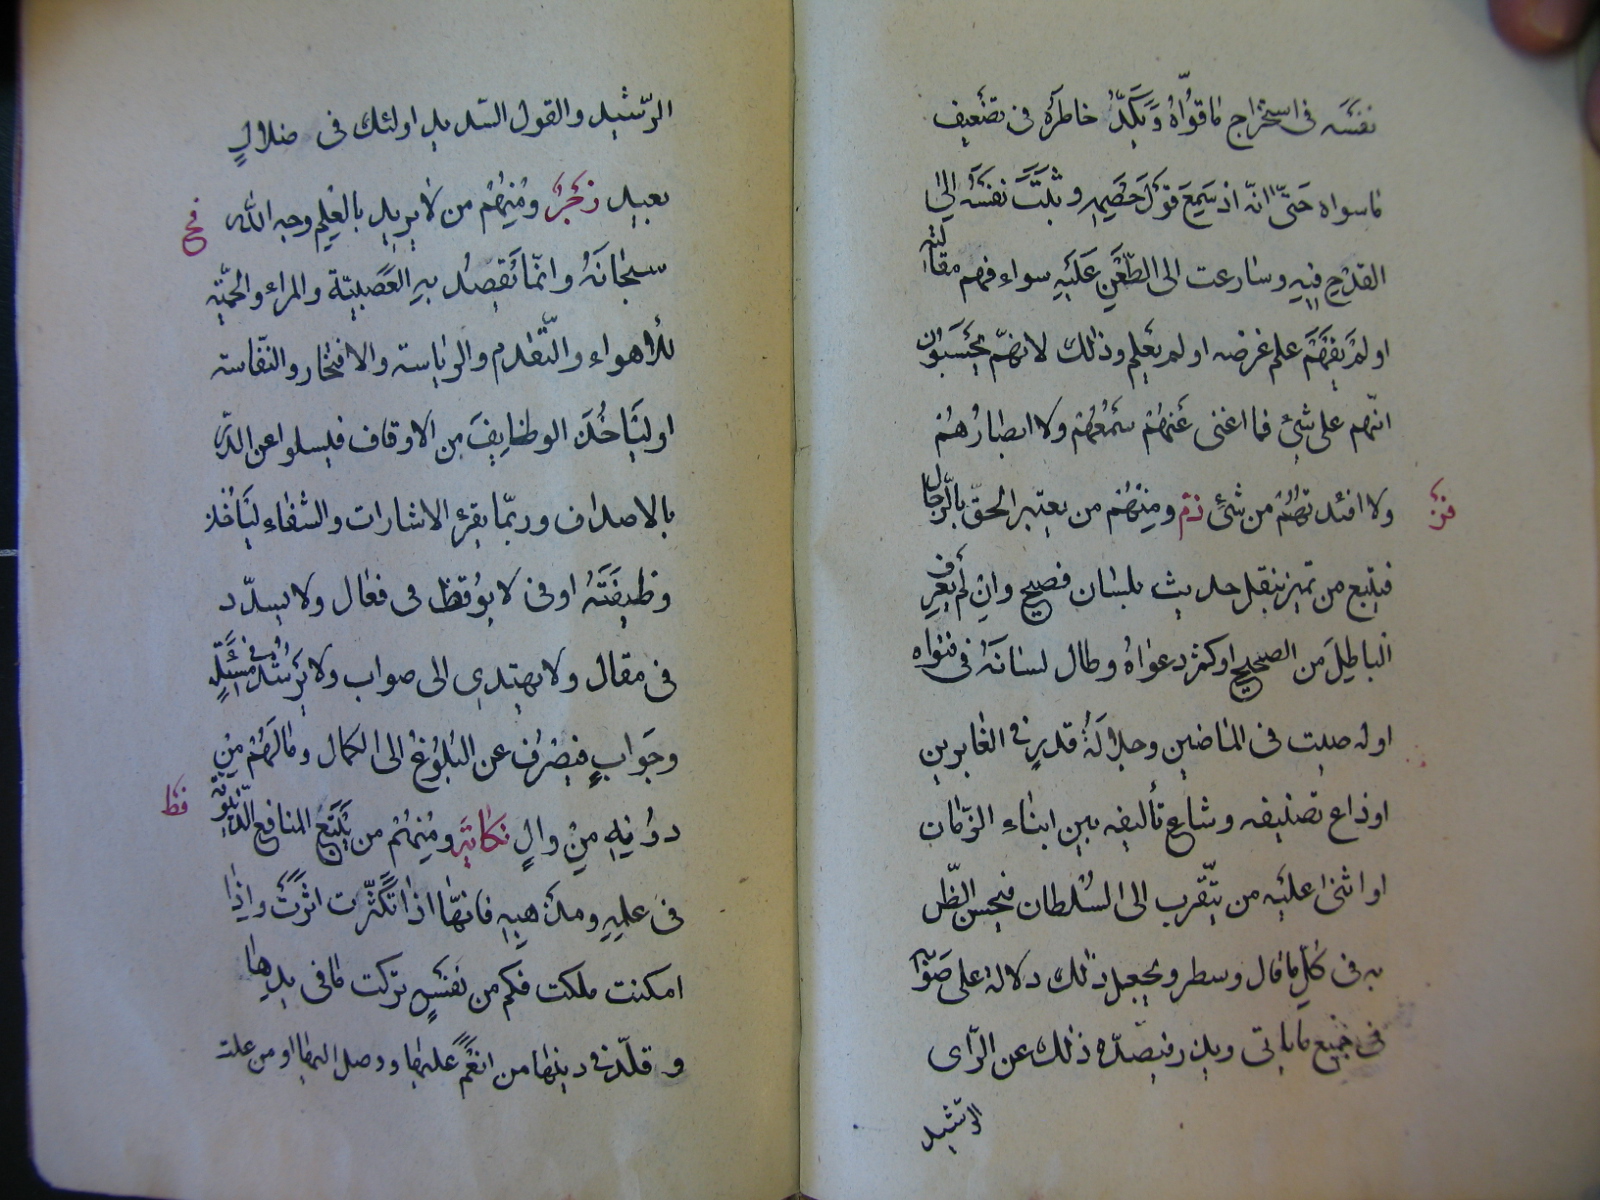 نفسَه فی استخراج ماقوّاهُ وَیَکدّ خاطرَهُ فی تضعیف
ماسواه حَتّی انّه اذ سَمِعَ قولَ خَصمِهِ وثبَتَت نفسَهُ الی
القدحِ فیهِ وسارعت الی الطّعنِ عَلَیهِ سواء فهم مقالته
اولَم یفهَم علم غرضه اولم یعلم وذلك لانهّم یَحسَبون
انّهم علی شیْ فما اغنی عَنهُم سَمعُهُم ولا ابصارُهُم
ولا افئدتهُم من شیْ ذمّ ومِنهُم من یعتبر الحقّ بالرّجال
فیتبع من تمیز بنقل حدیث بلسان فصیح وان لَم یَعرِف
الباطِلَ من الصحیح اوکثر دعواهُ وطال لسانَهُ فی فتواه
اوله صیت فی الماضین وجلالَةُ قدرٍ فی الغابرین
اوذاع تصنیفه وشاع تألیفه بین ابناء الزّمان
او اثنی علَیه من یتّقرب الی السُلطان فیحسن الظّن
به فی کلّ ماقال وسطر ویجعل ذلك دلالة علی صَوابه
فی جمیع مایاتی ویذر فیصدّه ذلك عن الرّای
الرّشید
فز
الرّشید والقول السّدید اولئك فی ضلالٍ
بعید زَجرٌ ومُنهُم من لا یرید بالعِلمِ وجه الله
سبحانَهُ وانّما یَقصِدُ بِهِ العَصَبیّة والمراء والحمیّة
للأهواء والتّقدم والریاسة والافتخار والنّفاسة
اولیَاخُذَ الوظایِفَ مِن الاوقاف فیسلوا عن الدرّ
بالاصداف وربّما یقرء الاشارات والشفاء لیَأخُذ
وظیفَتَهُ اوفی لا یوُقظ فی فعال ولا یسدّد
فی مقال ولا یهتدی الی صواب ولا یُرشَدُ فی مَسئلةٍ
وجَوابٍ فیَصْرُف عن البُلوُغ الی الکمال ومالَهُم مِن
دوُنِهِ مِن والٍ تکاثر ومُنهُم من یَتَّبع المنافع الدّنیویّة
فی علمِهِ ومذهبِهِ فانهّا اذا تَکَثّرت اثرّت واذا
امکنت ملکت فکم من نفسٍ ترکت مافی یدِها
وقلّدت فی دینها من انعَم علیها ووصل الیها او من علت
فح
فط